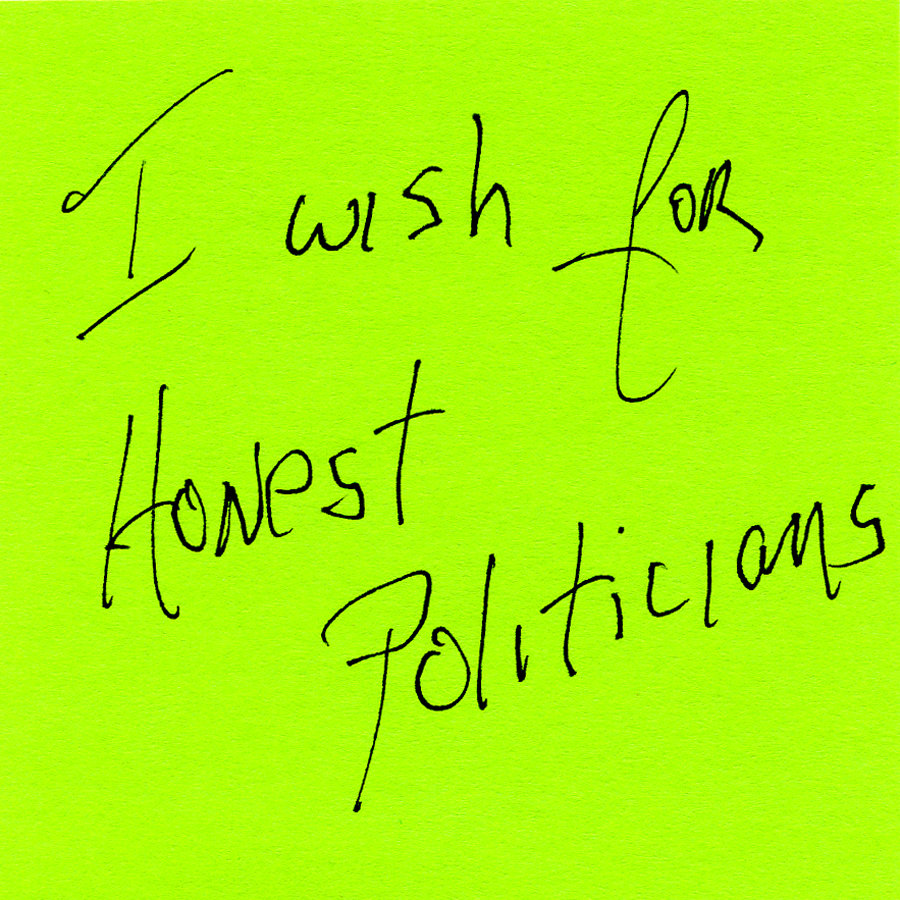 I wish for
Honest
Politicians